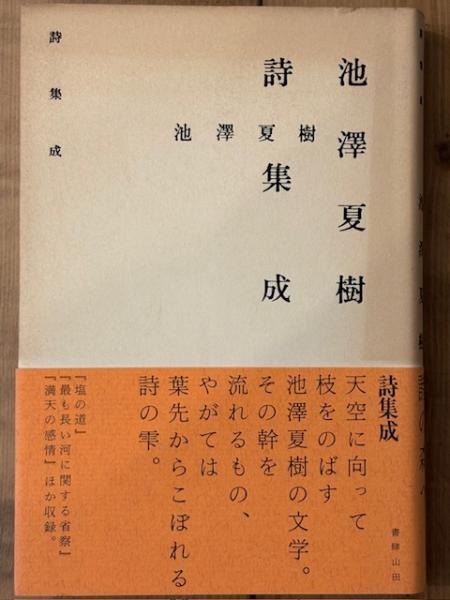 池澤夏樹
詩集成
池澤夏樹
詩集成
詩集成
天空に向って
枝をのばす
池澤夏樹の文学。
その幹を
流れるもの、
やがては
葉先からこぼれる
詩の雫。
『塩の道』
『最も長い河に関する省察』
『満天の感情』ほか収録。
書肆山田